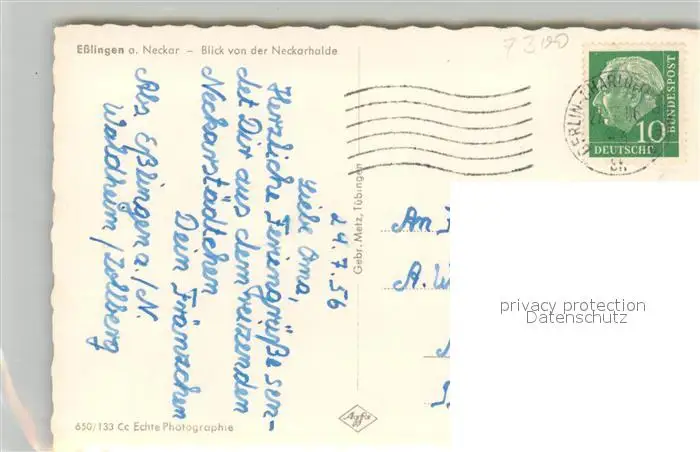 Eßlingen a. Neckar – Blick von der Neckarhalde
24.7.56
Liebe Oma,
Herzliche Feriengrüße sen-
det Dir aus dem reizenden
Neckarstädtchen
Dein Fränzchen
Abs. Eßlingen a./N.
Waldheim/Zollberg
650/133 Cc Echte Photographie
Gebr. Metz, Tübingen
Agfa
73190
BERLIN-CHARLO
DEUTSCHE
BUNDESPOST
10
An
A. W
privacy protection
Datenschutz